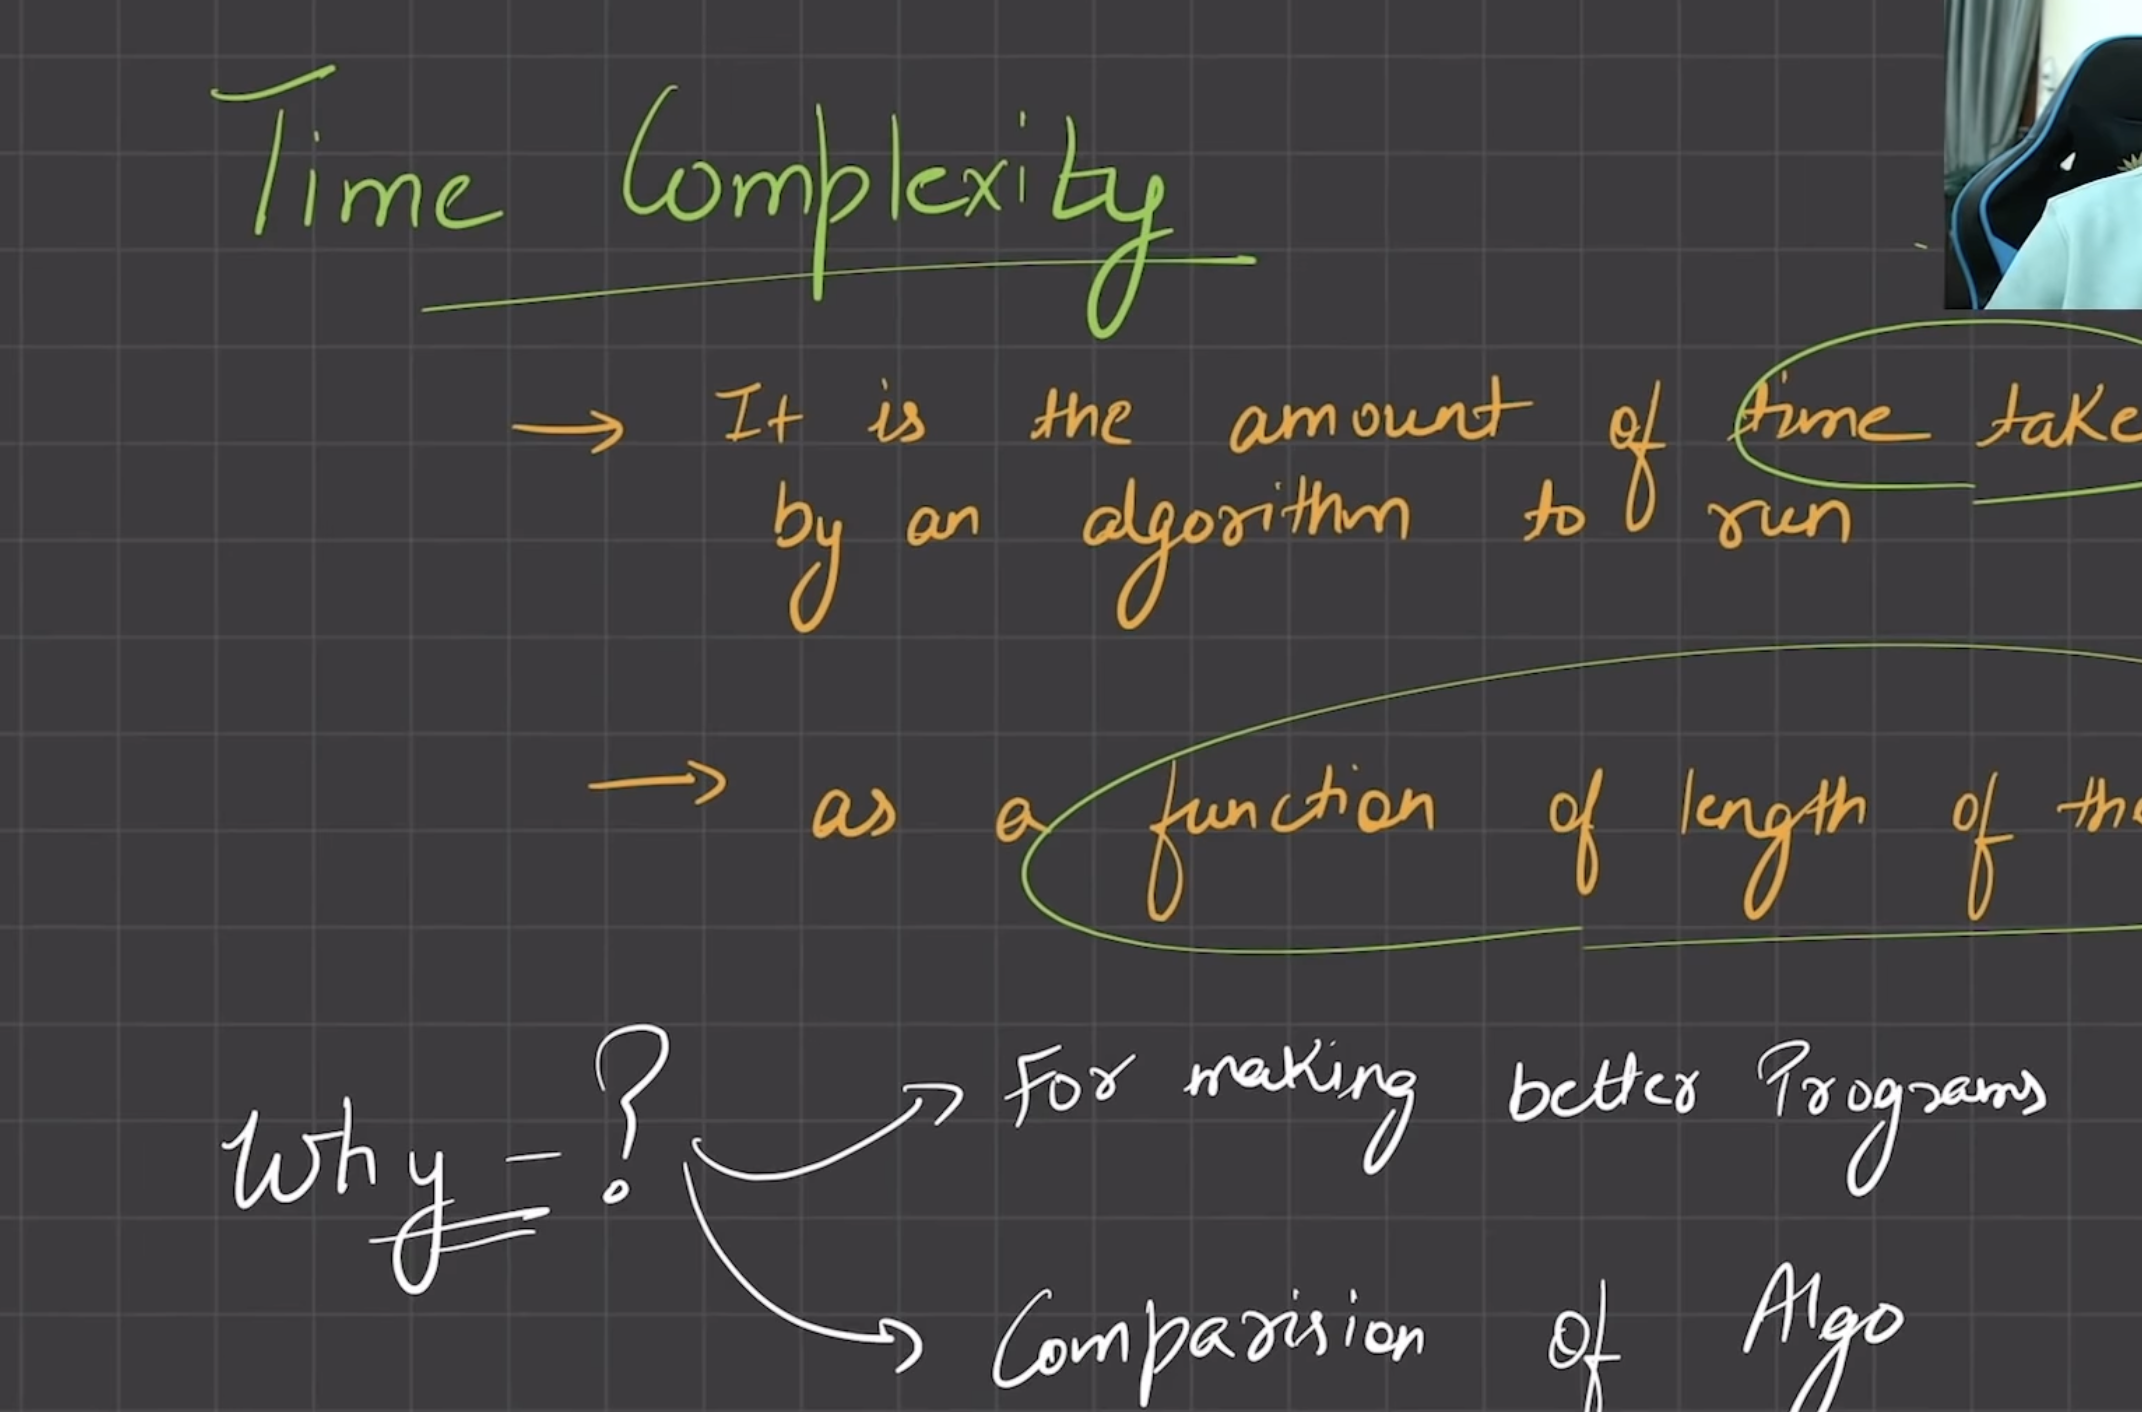 Time Complexity
→ It is the amount of time take
by an algorithm to run
→ as a function of length of the
Why - ? → For making better Programs
→ Comparision of Algo